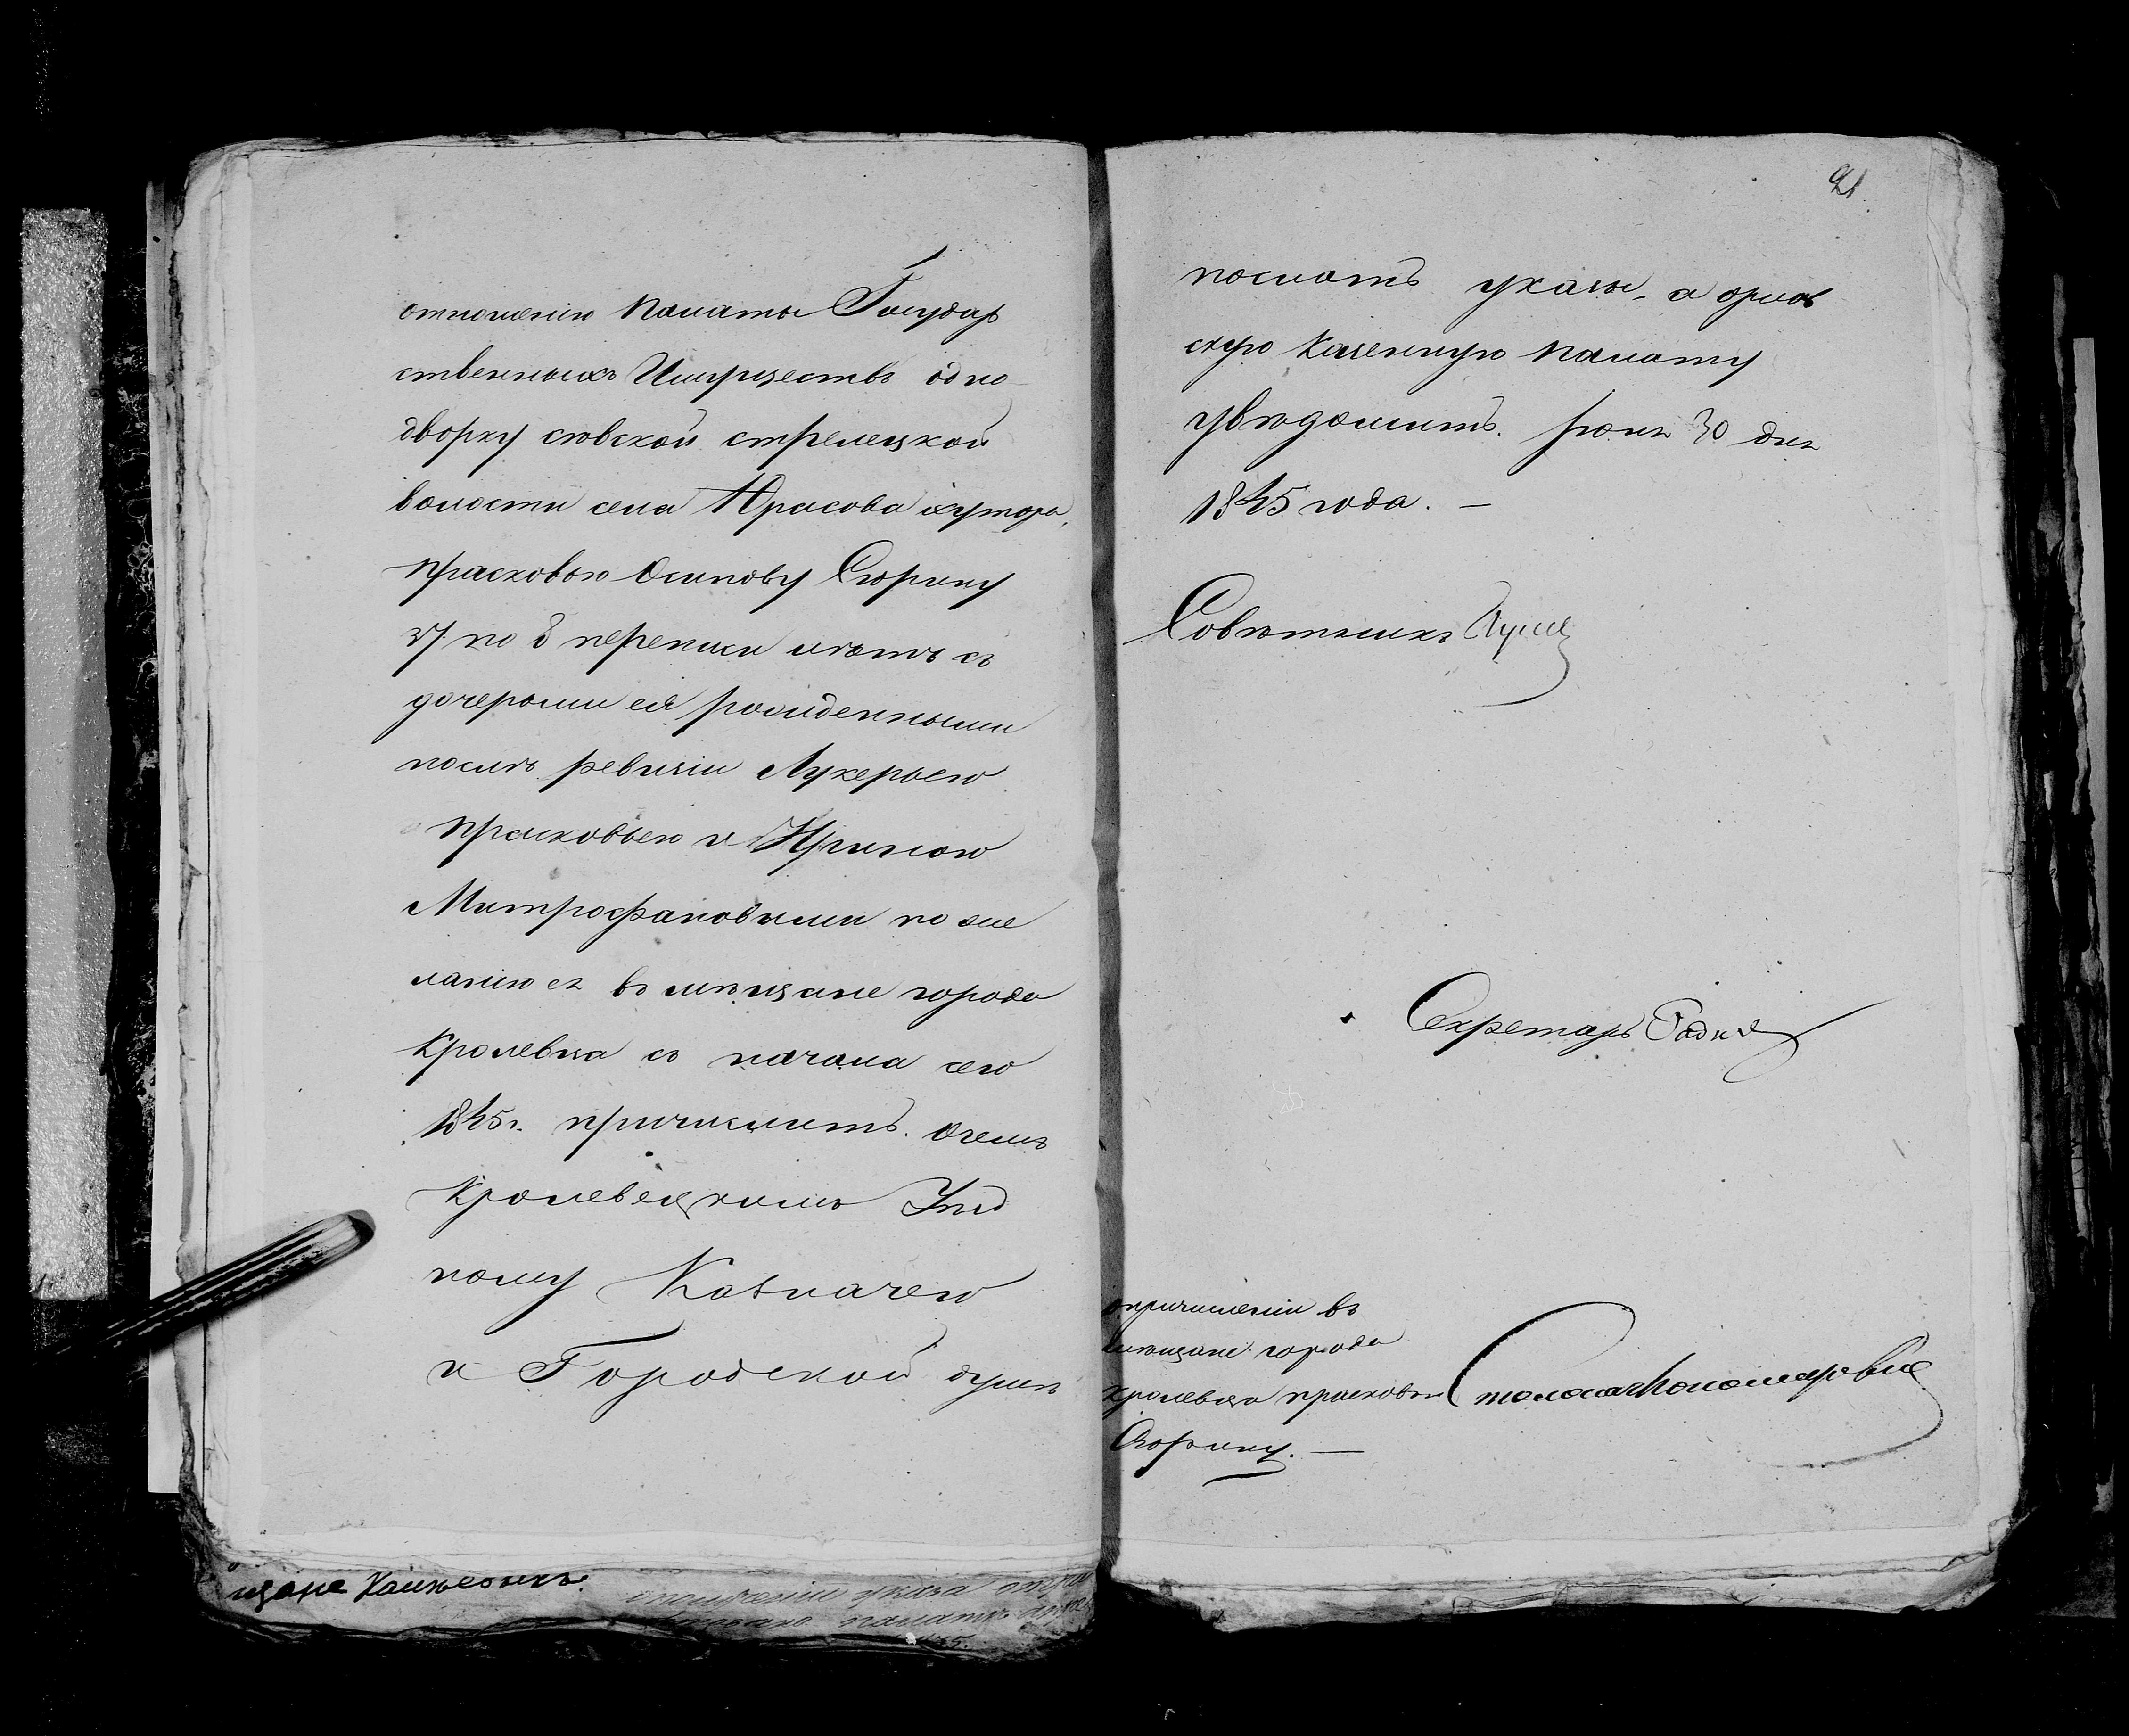 отношенію Палаты Государ
ственныхъ Имуществъ одно
дворку сѣвской стрелецкой
волости села Красова хутора,
Прасковью Осипову Сторину
37 по 8 переписи летъ съ
дочерьми ея рожденными
послѣ ревизіи Лукерьею
Прасковьею и Ириною
Митрофановыми по же
ланію ея въ мѣщане города
Кролевца съ начала сего
1845 г. причислить. О чемъ
Кролевецкимъ Уѣзд
ному Казначею
и Городской думѣ
щане
91
послать указы, а орлов
скую Казенную Палату
увѣдомить. Іюня 30 дня
1845 года. —
Совѣтникъ
Секретарь
о причисленіи въ
мѣщане города
Кролевца Прасковьи
Столоначальника